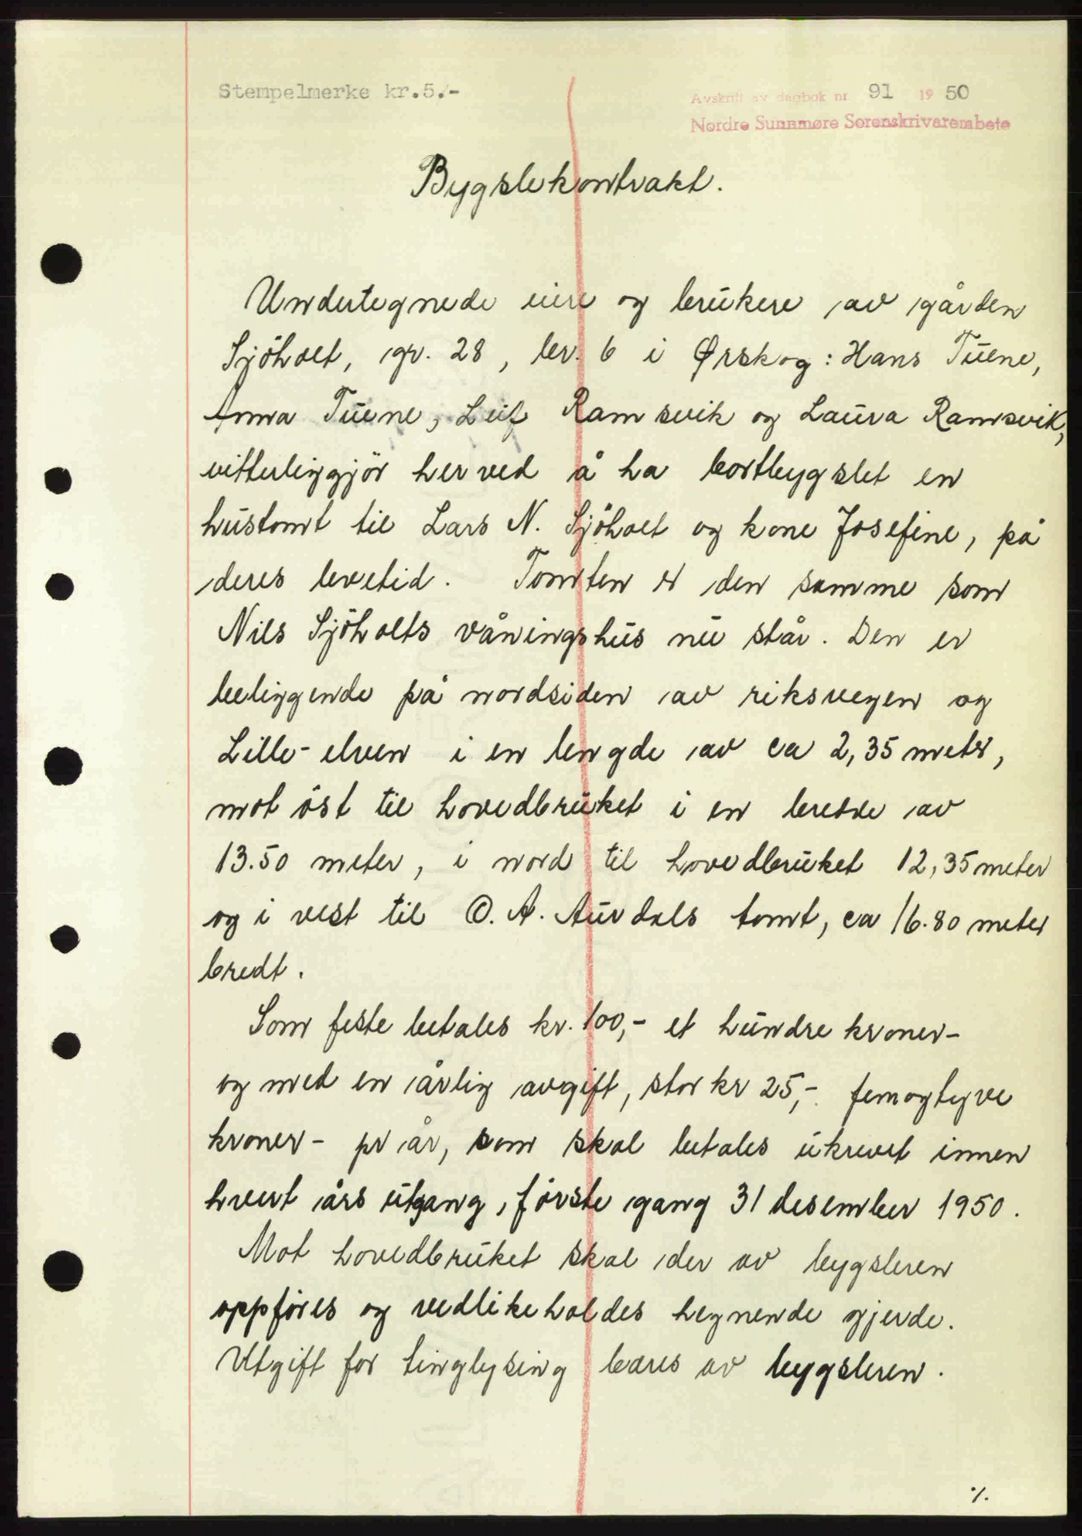 Stempelmerke kr.5.-
Avskrift av dagbok nr. 91 1950
Nordre Sunnmøre Sorenskrivarembete
Bygslekontrakt.
Undertegnede eiere og brukere av gården
Sjöholt, gr. 28, br. 6 i Ørskog: Hans Tuene,
Anna Tuene, Leif Ramsvik og Laura Ramsvik,
vitterliggjør herved å ha bortbygslet en
hustomt til Lars N. Sjöholt og kone Josefine, på
deres levetid. Tomten er den samme som
Nils Sjöholts våningshus nu står. Den er
beliggende på nordsiden av riksvegen og
Lille-elven i en lengde av ca 2,35 meter,
mot öst til hovedbruket i en bredde av
13.50 meter, i nord til hovedbruket 12,35 meter
og i vest til O. A. Aurdals tomt, ca 16.80 meter
bredt.
Som feste betales kr. 100,- et hundre kroner-
og med en årlig avgift, stor kr 25,- femogtyve
kroner- pr år, som skal betales ukrevet innen
hvert års utgang, første gang 31 desember 1950.
Mot hovedbruket skal der av bygsleren
oppføres og vedlikeholdes hegnende gjerde.
Utgift for tinglysing bæres av bygsleren.
%.